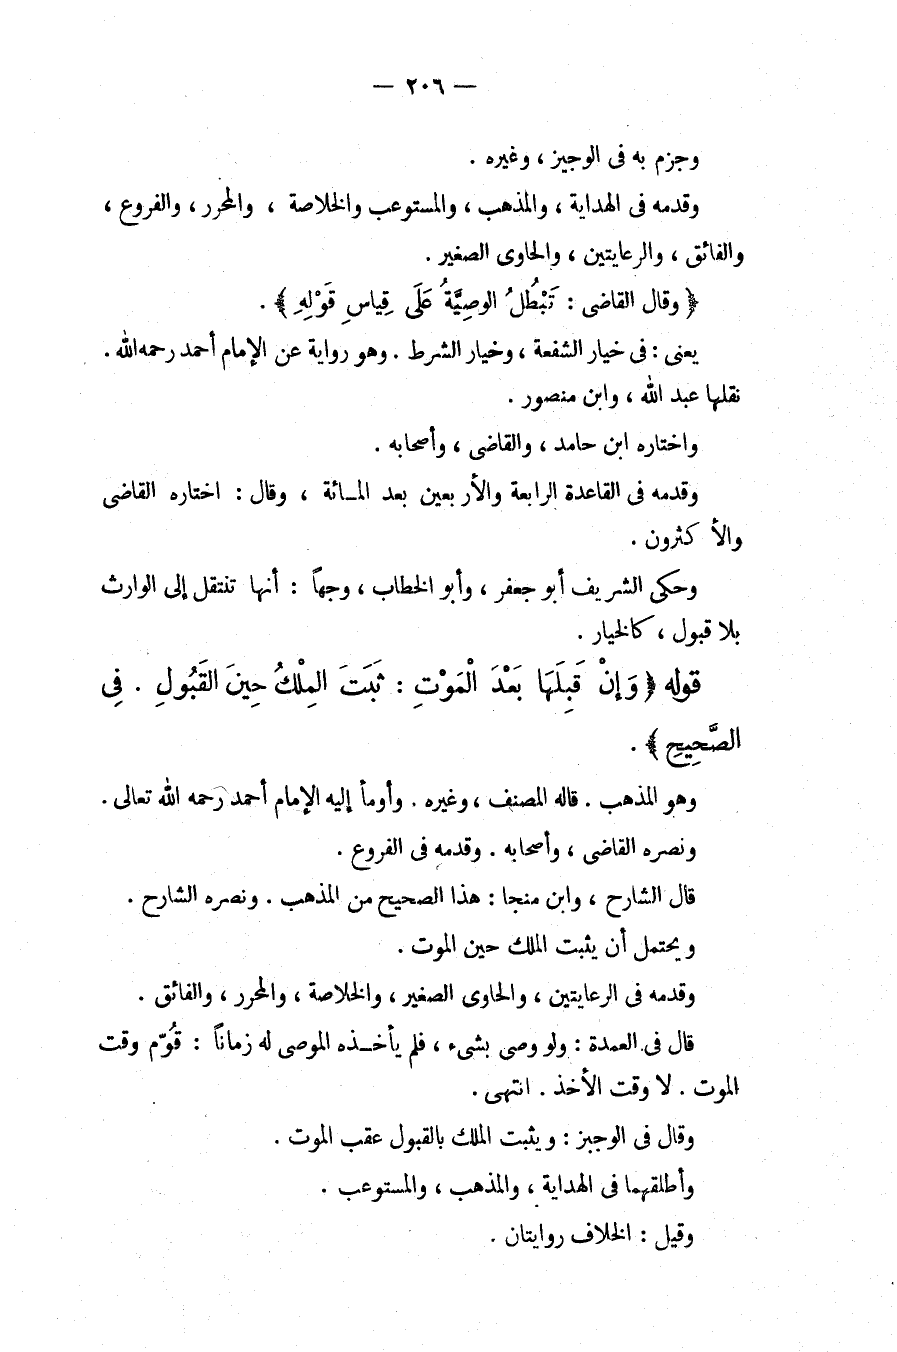 — ٢٠٦ —
وجزم به فى الوجيز ، وغيره .
وقدمه فى الهداية ، والمذهب ، والمستوعب والخلاصة ، والمحرر ، والفروع ،
والفائق ، والرعايتين ، والحاوى الصغير .
﴿ وقال القاضى : تَبْطُلُ الوصِيَّةُ عَلَى قِياسِ قَوْلِهِ ﴾ .
يعنى : فى خيار الشفعة ، وخيار الشرط . وهو رواية عن الإمام أحمد رحمه الله .
نقلها عبد الله ، وابن منصور .
واختاره ابن حامد ، والقاضى ، وأصحابه .
وقدمه فى القاعدة الرابعة والأربعين بعد المـائة ، وقال : اختاره القاضى
والأكثرون .
وحكى الشريف أبو جعفر ، وأبو الخطاب ، وجهاً : أنها تنتقل إلى الوارث
بلا قبول ، كالخيار .
قوله ﴿ وَإِنْ قَبِلَهَا بَعْدَ الْمَوْتِ : ثَبَتَ المِلْكُ حِينَ القَبُولِ . فِى
الصَّحِيحِ ﴾ .
وهو المذهب . قاله المصنف ، وغيره . وأومأ إليه الإمام أحمد رحمه الله تعالى .
ونصره القاضى ، وأصحابه . وقدمه فى الفروع .
قال الشارح ، وابن منجا : هذا الصحيح من المذهب . ونصره الشارح .
ويحتمل أن يثبت الملك حين الموت .
وقدمه فى الرعايتين ، والحاوى الصغير ، والخلاصة ، والمحرر ، والفائق .
قال فى العمدة : ولو وصى بشىء ، فلم يأخـذه الموصى له زماناً : قُوّم وقت
الموت . لا وقت الأخذ . انتهى .
وقال فى الوجيز : ويثبت الملك بالقبول عقب الموت .
وأطلقهما فى الهداية ، والمذهب ، والمستوعب .
وقيل : الخلاف روايتان .